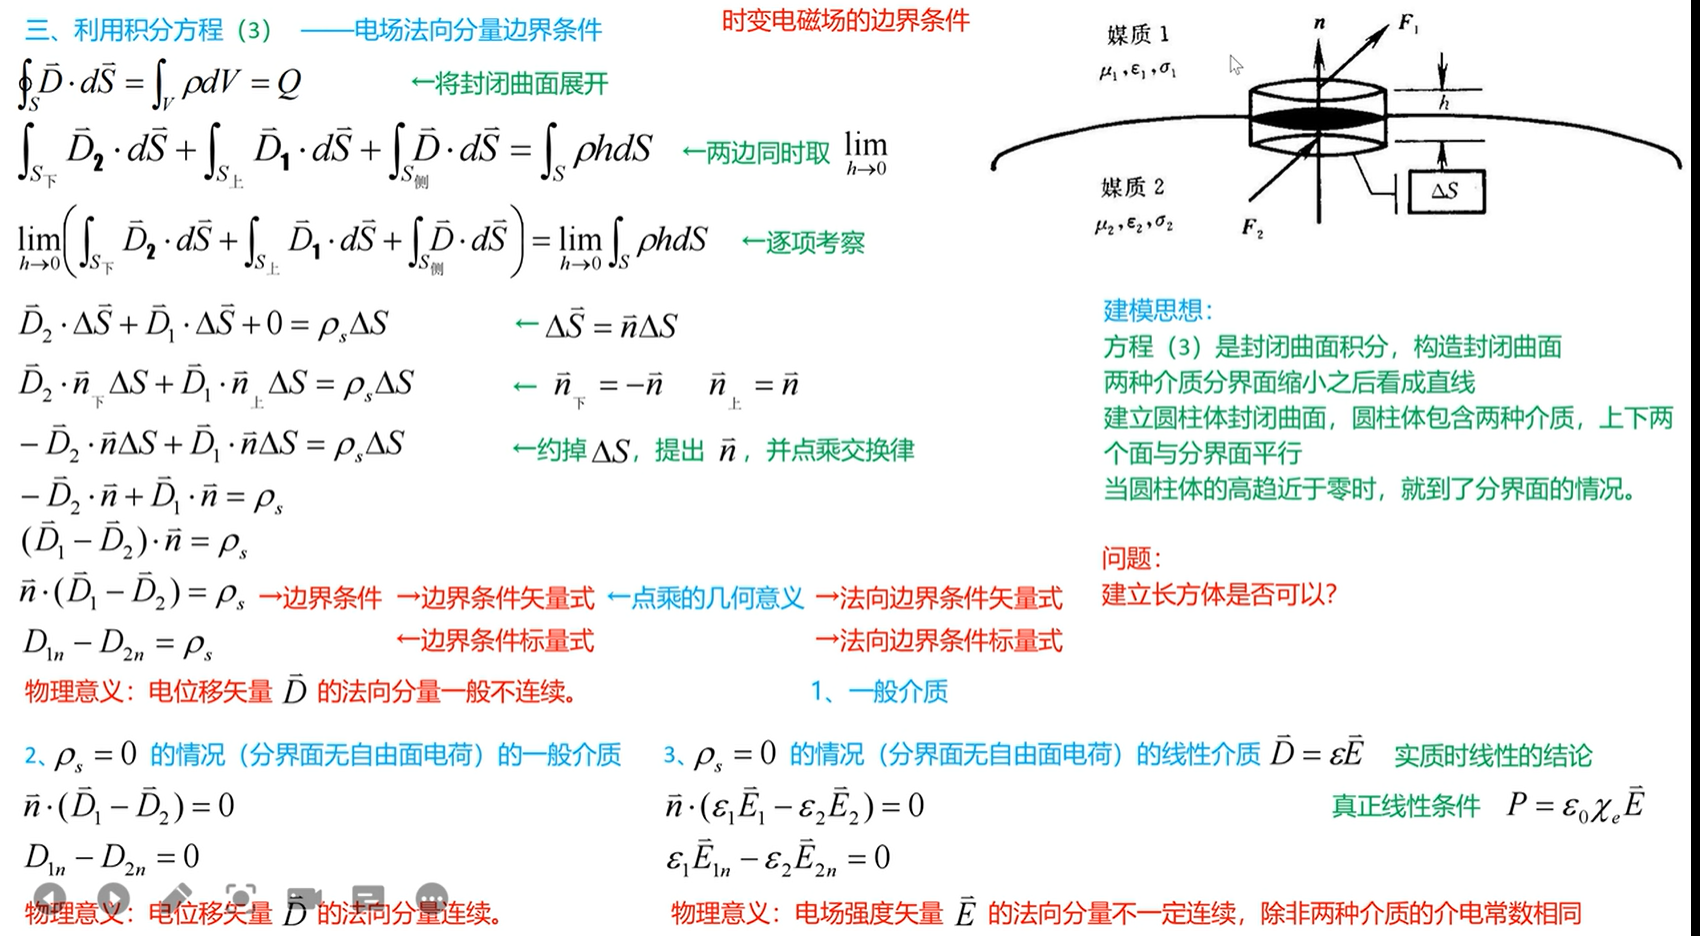 时变电磁场的边界条件
三、利用积分方程（3） ——电场法向分量边界条件
∮_S D⃗·dS⃗ = ∫_V ρdV = Q ←将封闭曲面展开
∫_{S下} D⃗₂·dS⃗ + ∫_{S上} D⃗₁·dS⃗ + ∫_{S侧} D⃗·dS⃗ = ∫_S ρhdS ←两边同时取 lim_{h→0}
lim_{h→0}(∫_{S下} D⃗₂·dS⃗ + ∫_{S上} D⃗₁·dS⃗ + ∫_{S侧} D⃗·dS⃗) = lim_{h→0} ∫_S ρhdS ←逐项考察
D⃗₂·ΔS⃗ + D⃗₁·ΔS⃗ + 0 = ρ_sΔS ← ΔS⃗ = n⃗ΔS
D⃗₂·n⃗_下 ΔS + D⃗₁·n⃗_上 ΔS = ρ_sΔS ← n⃗_下 = −n⃗ n⃗_上 = n⃗
− D⃗₂·n⃗ΔS + D⃗₁·n⃗ΔS = ρ_sΔS ←约掉 ΔS，提出 n⃗，并点乘交换律
− D⃗₂·n⃗ + D⃗₁·n⃗ = ρ_s
(D⃗₁ − D⃗₂)·n⃗ = ρ_s
n⃗·(D⃗₁ − D⃗₂) = ρ_s →边界条件 →边界条件矢量式 ←点乘的几何意义 →法向边界条件矢量式
D₁ₙ − D₂ₙ = ρ_s ←边界条件标量式 →法向边界条件标量式
物理意义：电位移矢量 D⃗ 的法向分量一般不连续。 1、一般介质
媒质 1
μ₁,ε₁,σ₁
n
F₁
h
媒质 2
μ₂,ε₂,σ₂
F₂
ΔS
建模思想：
方程（3）是封闭曲面积分，构造封闭曲面
两种介质分界面缩小之后看成直线
建立圆柱体封闭曲面，圆柱体包含两种介质，上下两
个面与分界面平行
当圆柱体的高趋近于零时，就到了分界面的情况。
问题：
建立长方体是否可以？
2、ρ_s = 0 的情况（分界面无自由面电荷）的一般介质
n⃗·(D⃗₁ − D⃗₂) = 0
D₁ₙ − D₂ₙ = 0
物理意义：电位移矢量 D⃗ 的法向分量连续。
3、ρ_s = 0 的情况（分界面无自由面电荷）的线性介质 D⃗ = εE⃗ 实质时线性的结论
n⃗·(ε₁E⃗₁ − ε₂E⃗₂) = 0 真正线性条件 P = ε₀χ_eE⃗
ε₁E⃗₁ₙ − ε₂E⃗₂ₙ = 0
物理意义：电场强度矢量 E⃗ 的法向分量不一定连续，除非两种介质的介电常数相同